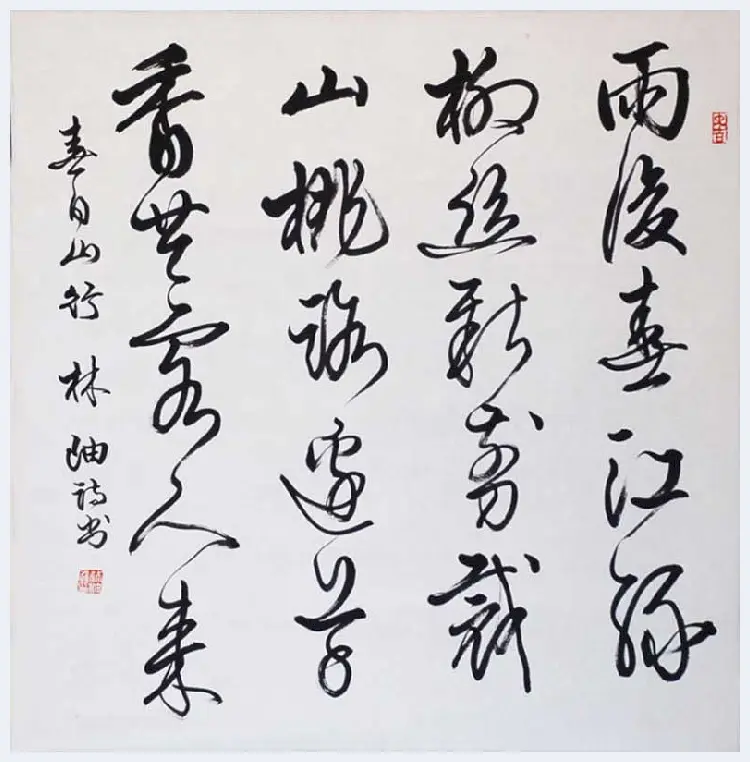 雨後春江綠
柳絲新剪裁
山桃路邊草
香共客人來
春日山行 林岫詩書